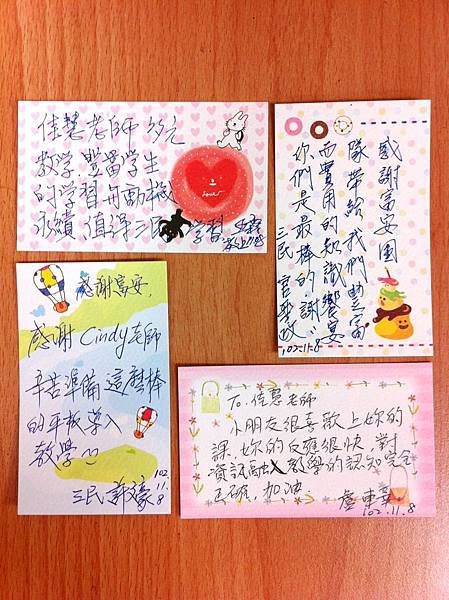 佳慧老師多元
教学,豐富学生
的学習用動機
永續值得三民
学習
敬上
love
感謝富安團
隊帶給我們豐富
而實用的知識饗宴
你們是最棒的,謝謝!
三民
102.11.8
感謝富安,
感謝Cindy老師
辛苦準備這麼棒
的平板導入
教学
三民
102
11
8
To.佳慧老師
小朋友很喜歡上妳的
課,妳的反應很快,對
資訊融入教學的認知完全
正確,加油
盧東華
102.11.8